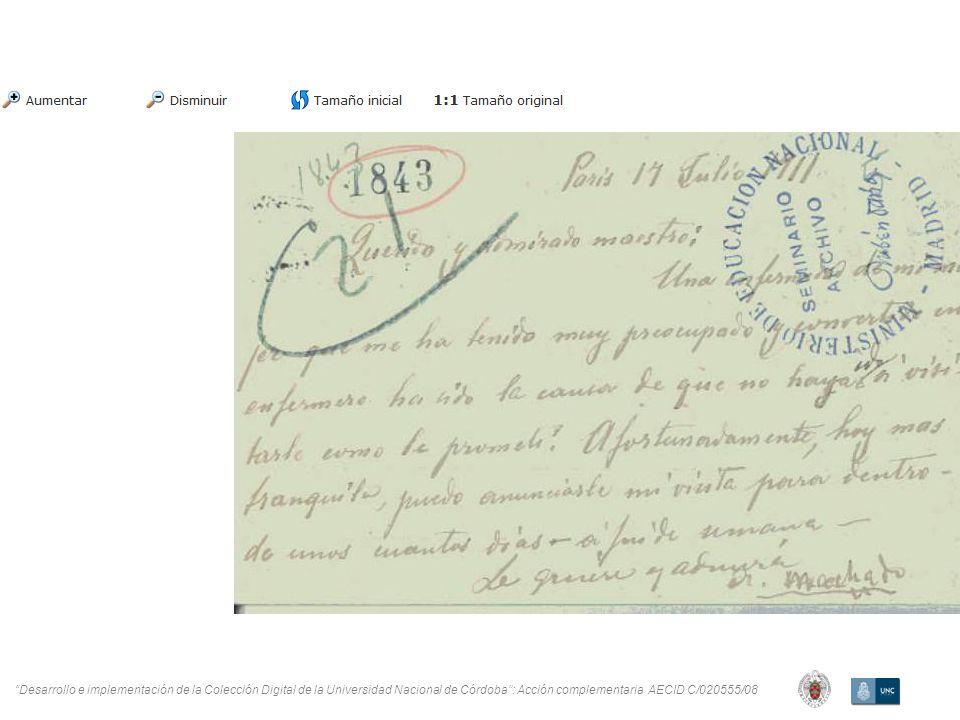 Aumentar Disminuir Tamaño inicial 1:1 Tamaño original
1843
1843
21
Paris 17 Julio 1911
Querido y admirado maestro:
Una enfermedad de mi mu
jer que me ha tenido muy preocupado y convertido en
enfermero ha sido la causa de que no haya ido á visi
tarle como le prometí. Afortunadamente, hoy mas
tranquilo, puedo anunciarle mi visita para dentro
de unos cuantos dias – á fin de semana –
Le quiere y admira
A. Machado
MINISTERIO DE EDUCACION NACIONAL - MADRID -
SEMINARIO
ARCHIVO
Rubén Darío
"Desarrollo e implementación de la Colección Digital de la Universidad Nacional de Córdoba": Acción complementaria AECID C/020555/08
UNC